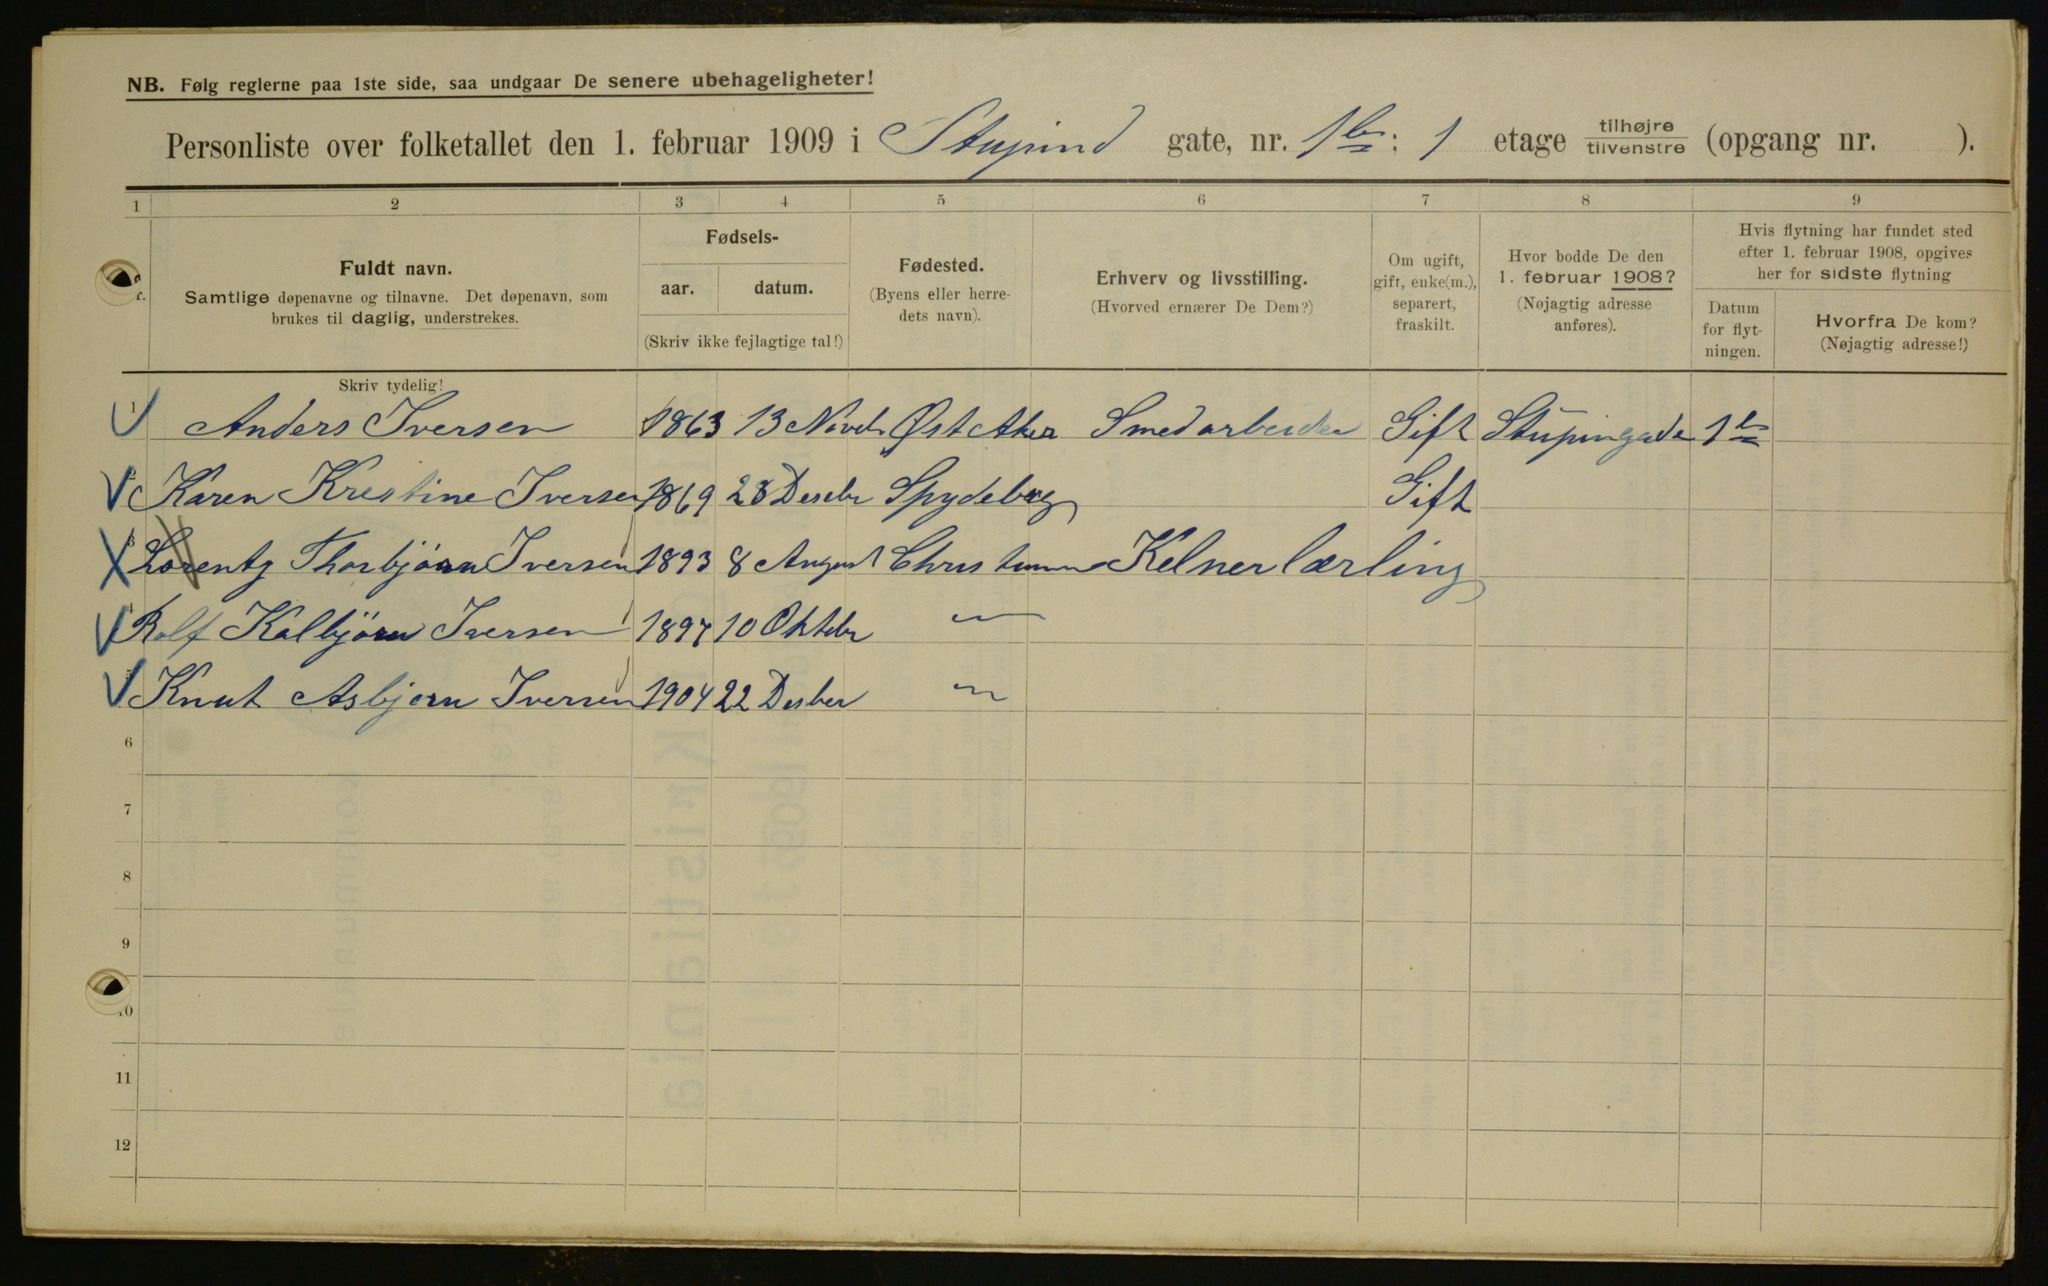 NB. Følg reglerne paa 1ste side, saa undgaar De senere ubehageligheter!
Personliste over folketallet den 1. februar 1909 i Stupind gate, nr. 1 b: 1 etage tilhøjre tilvenstre (opgang nr. ).
1 2 3 4 5 6 7 8 9
Fuldt navn.
Samtlige døpenavne og tilnavne. Det døpenavn, som
brukes til daglig, understrekes.
Fødsels-
aar. datum.
(Skriv ikke fejlagtige tal!)
Fødested.
(Byens eller herre-
dets navn).
Erhverv og livsstilling.
(Hvorved ernærer De Dem?)
Om ugift,
gift, enke(m.),
separert,
fraskilt.
Hvor bodde De den
1. februar 1908?
(Nøjagtig adresse
anføres).
Hvis flytning har fundet sted
efter 1. februar 1908, opgives
her for sidste flytning
Datum
for flyt-
ningen.
Hvorfra De kom?
(Nøjagtig adresse!)
Skriv tydelig!
1 Anders Iversen 1863 13 Novbr Øst Aker Smedarbeider Gift Stupingade 1 b
Karen Kristine Iversen 1869 28 Desebr Spydeberg Gift
3 Lorentz Thorbjørn Iversen 1893 8 August Christiania Kelner lærling
4 Rolf Kolbjørn Iversen 1897 10 Oktobr — " —
Knut Asbjørn Iversen 1904 22 Desber — " —
6
7
8
9
10
11
12